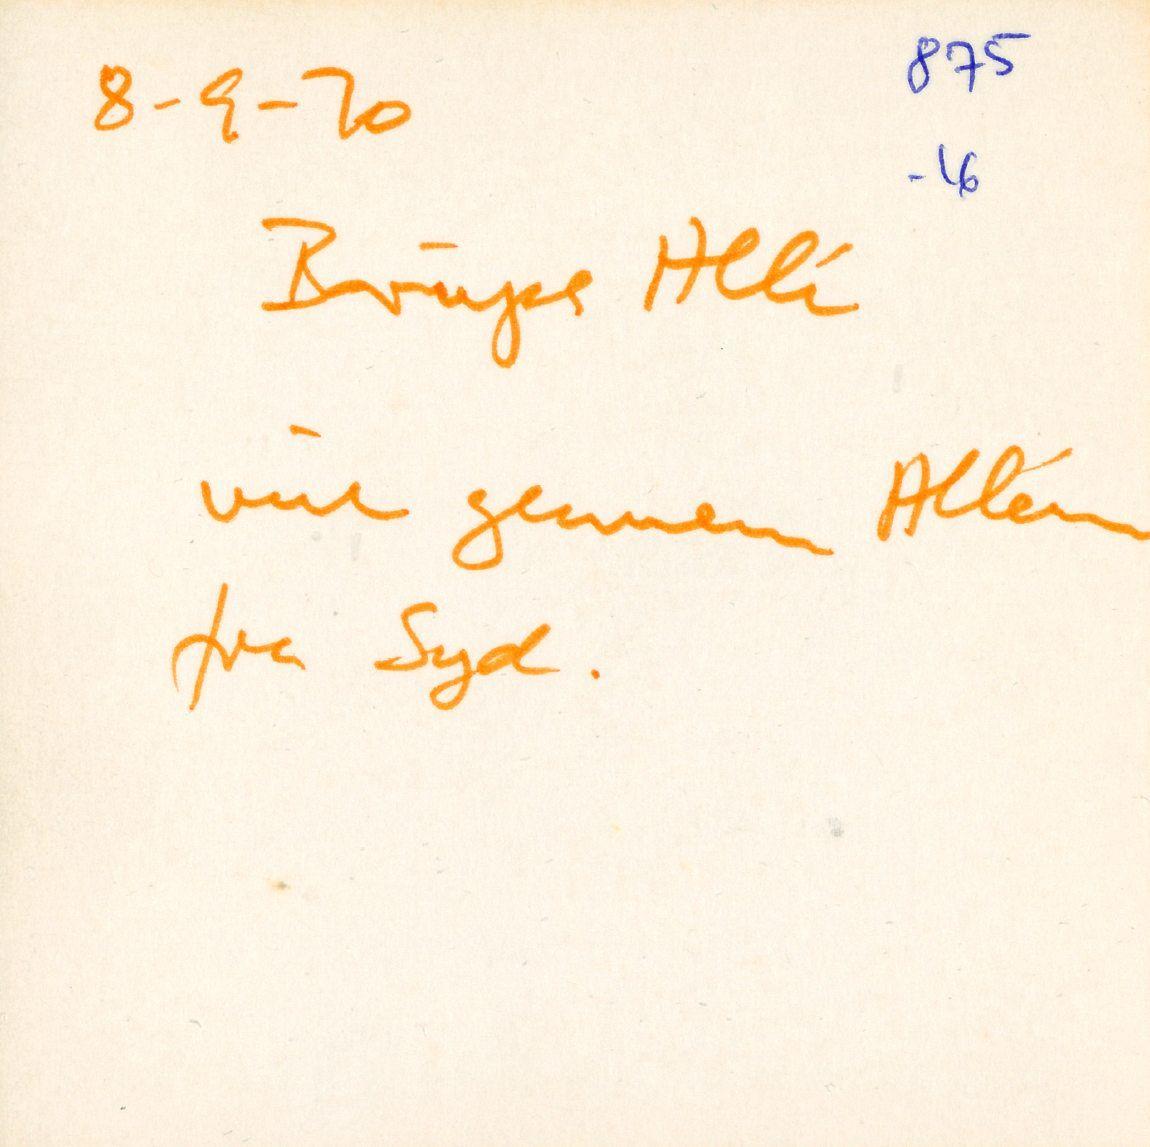 8-9-70
875
-16
Allé
vūe gennem Alléen
fra Syd.